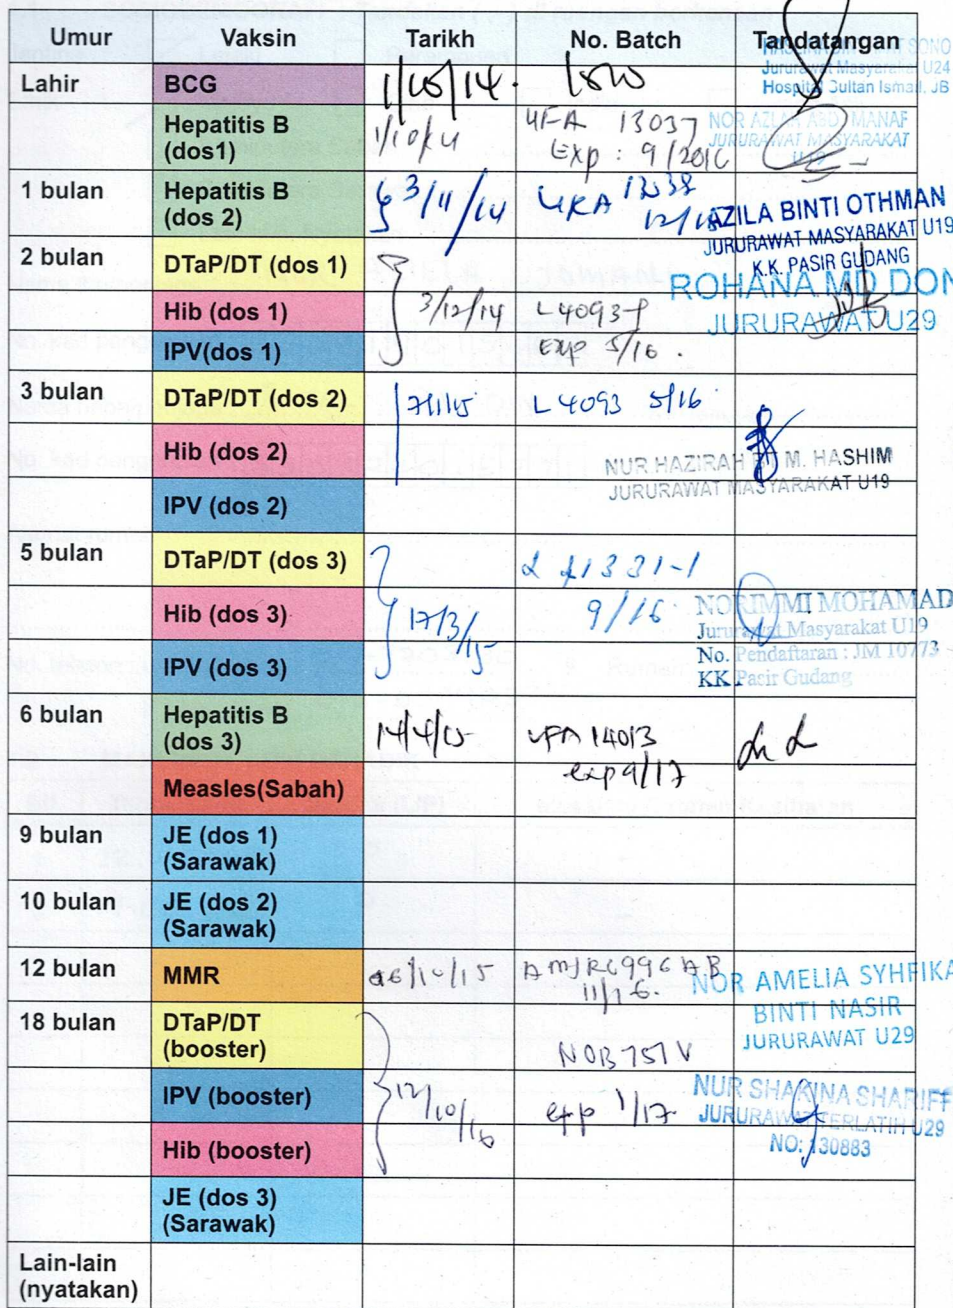 Umur Vaksin Tarikh No. Batch Tandatangan
Lahir BCG 1/10/14
Jururawat Masyarakat U24
Hospital Sultan Ismail, JB
Hepatitis B 1/10/14 UFA 13037 NOR AZLAH ABD. MANAF
(dos1) Exp : 9/2016 JURURAWAT MASYARAKAT
U19
1 bulan Hepatitis B 3/11/14 12038
(dos 2) AZILA BINTI OTHMAN
JURURAWAT MASYARAKAT U19
K.K. PASIR GUDANG
2 bulan DTaP/DT (dos 1) ROHANA MD DON
Hib (dos 1) 3/12/14 L4093-1 JURURAWAT U29
IPV(dos 1) exp 5/16 .
3 bulan DTaP/DT (dos 2) 7/1/15 L 4093 5/16
Hib (dos 2) NUR HAZIRAH BT M. HASHIM
JURURAWAT MASYARAKAT U19
IPV (dos 2)
5 bulan DTaP/DT (dos 3) 1331-1
Hib (dos 3) 17/3/15 9/16 NORIMMI MOHAMAD
Jururawat Masyarakat U19
No. Pendaftaran : JM 10773
IPV (dos 3) KK Pasir Gudang
6 bulan Hepatitis B 14/4/15 UFA 14013
(dos 3) exp 9/17
Measles(Sabah)
9 bulan JE (dos 1)
(Sarawak)
10 bulan JE (dos 2)
(Sarawak)
12 bulan MMR 06/10/15 AMJRC996AB NOR AMELIA SYHFIKA
BINTI NASIR
18 bulan DTaP/DT JURURAWAT U29
(booster) NOB751V
IPV (booster) 12/10/16 exp 1/17 NUR SHAKINA SHARIFF
JURURAWAT TERLATIH U29
Hib (booster) NO: 130883
JE (dos 3)
(Sarawak)
Lain-lain
(nyatakan)